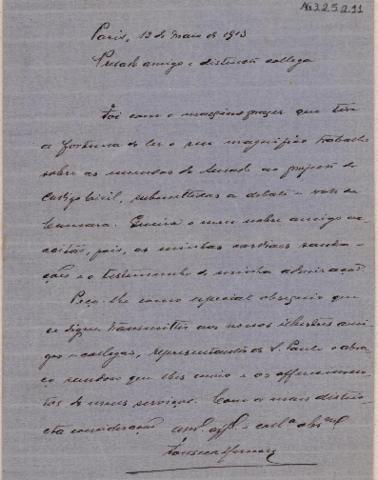 Nº 3.2.5.2.11
Paris, 12 de Maio de 1913
Presado amigo e distincto collega
Foi com o maximo prazer que tive
a fortuna de ler o seu magnifico trabalho
sobre as emendas do Senado ao projecto do
Codigo Civil, submettidas a debate e voto da
Camara. Queira o meu nobre amigo
acceitar, pois, as minhas cordiaes sauda-
ções e o testemunho de minha admiração.
Peço-lhe como especial obsequio que
se digne transmittir aos nossos illustres ami-
gos e collegas, representantes de S. Paulo o abra-
ço saudoso que lhes envio e os offerecimen-
tos de meus serviços. Com a mais distin-
cta consideração
Fonseca Hermes